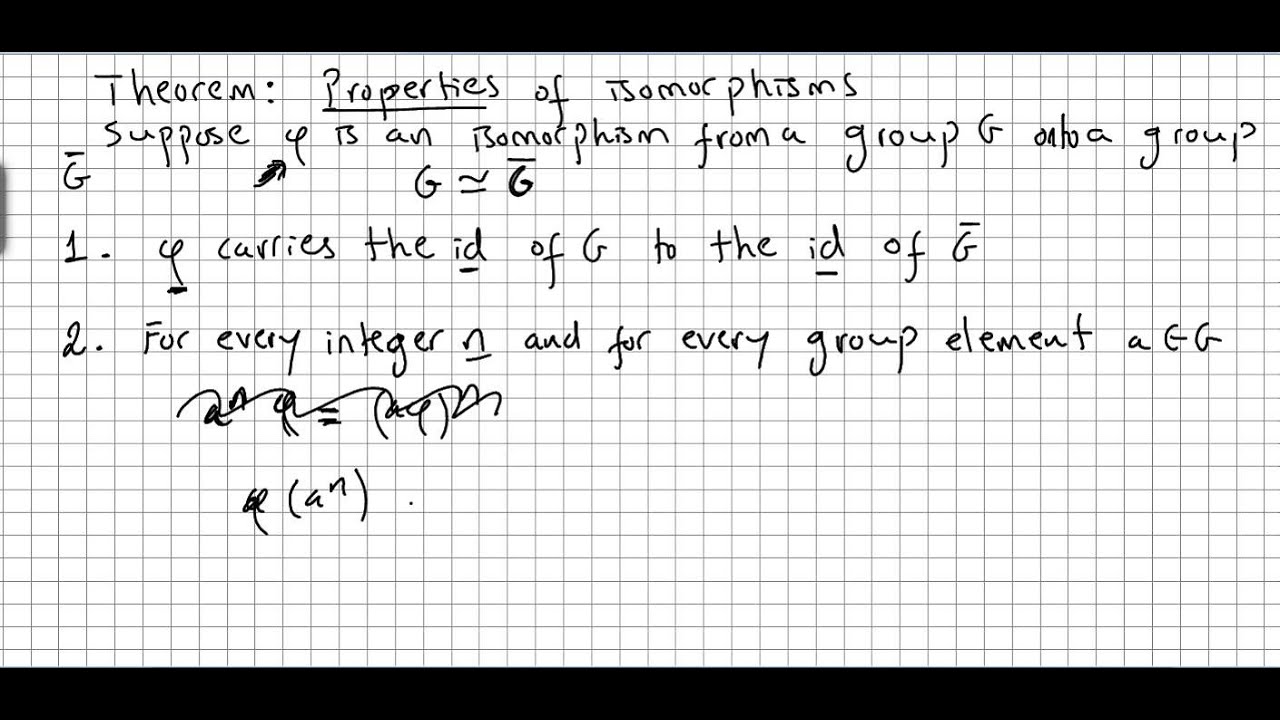 Theorem: Properties of isomorphisms
Suppose φ is an isomorphism from a group G onto a group
G̅ G ≃ G̅
1. φ carries the id of G to the id of G̅
2. For every integer n and for every group element a ∈ G
aⁿ φ = (aφ)ⁿ
φ (aⁿ) .